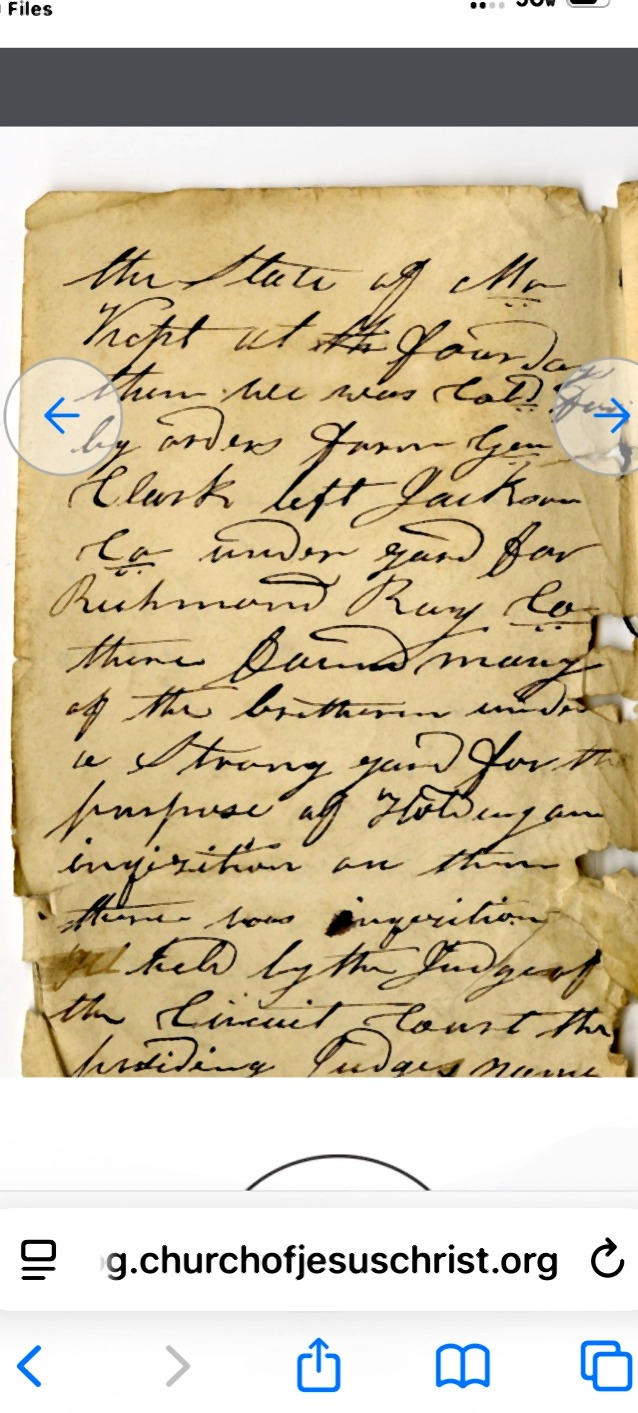 Files
the State of Mo
Kept at the four day
then we was Cald for
by orders form Gen
Clark left Jackson
Co under gard for
Richmond Ray Co
there found many
of the bretheren under
a Strong gard for the
purpose of Holding an
inqisition on them
there was inqusition
held by the Judge of
the Circuit Court the
presiding Judges name
g.churchofjesuschrist.org